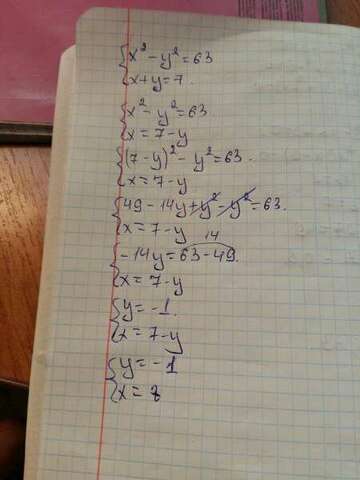 {x² - y² = 63
{x + y = 7.
{x² - y² = 63
{x = 7 - y
{(7 - y)² - y² = 63.
{x = 7 - y
{49 - 14y + y² - y² = 63.
{x = 7 - y
14
{-14y = 63 - 49.
{x = 7 - y
{y = -1.
{x = 7 - y
{y = -1
{x = 8